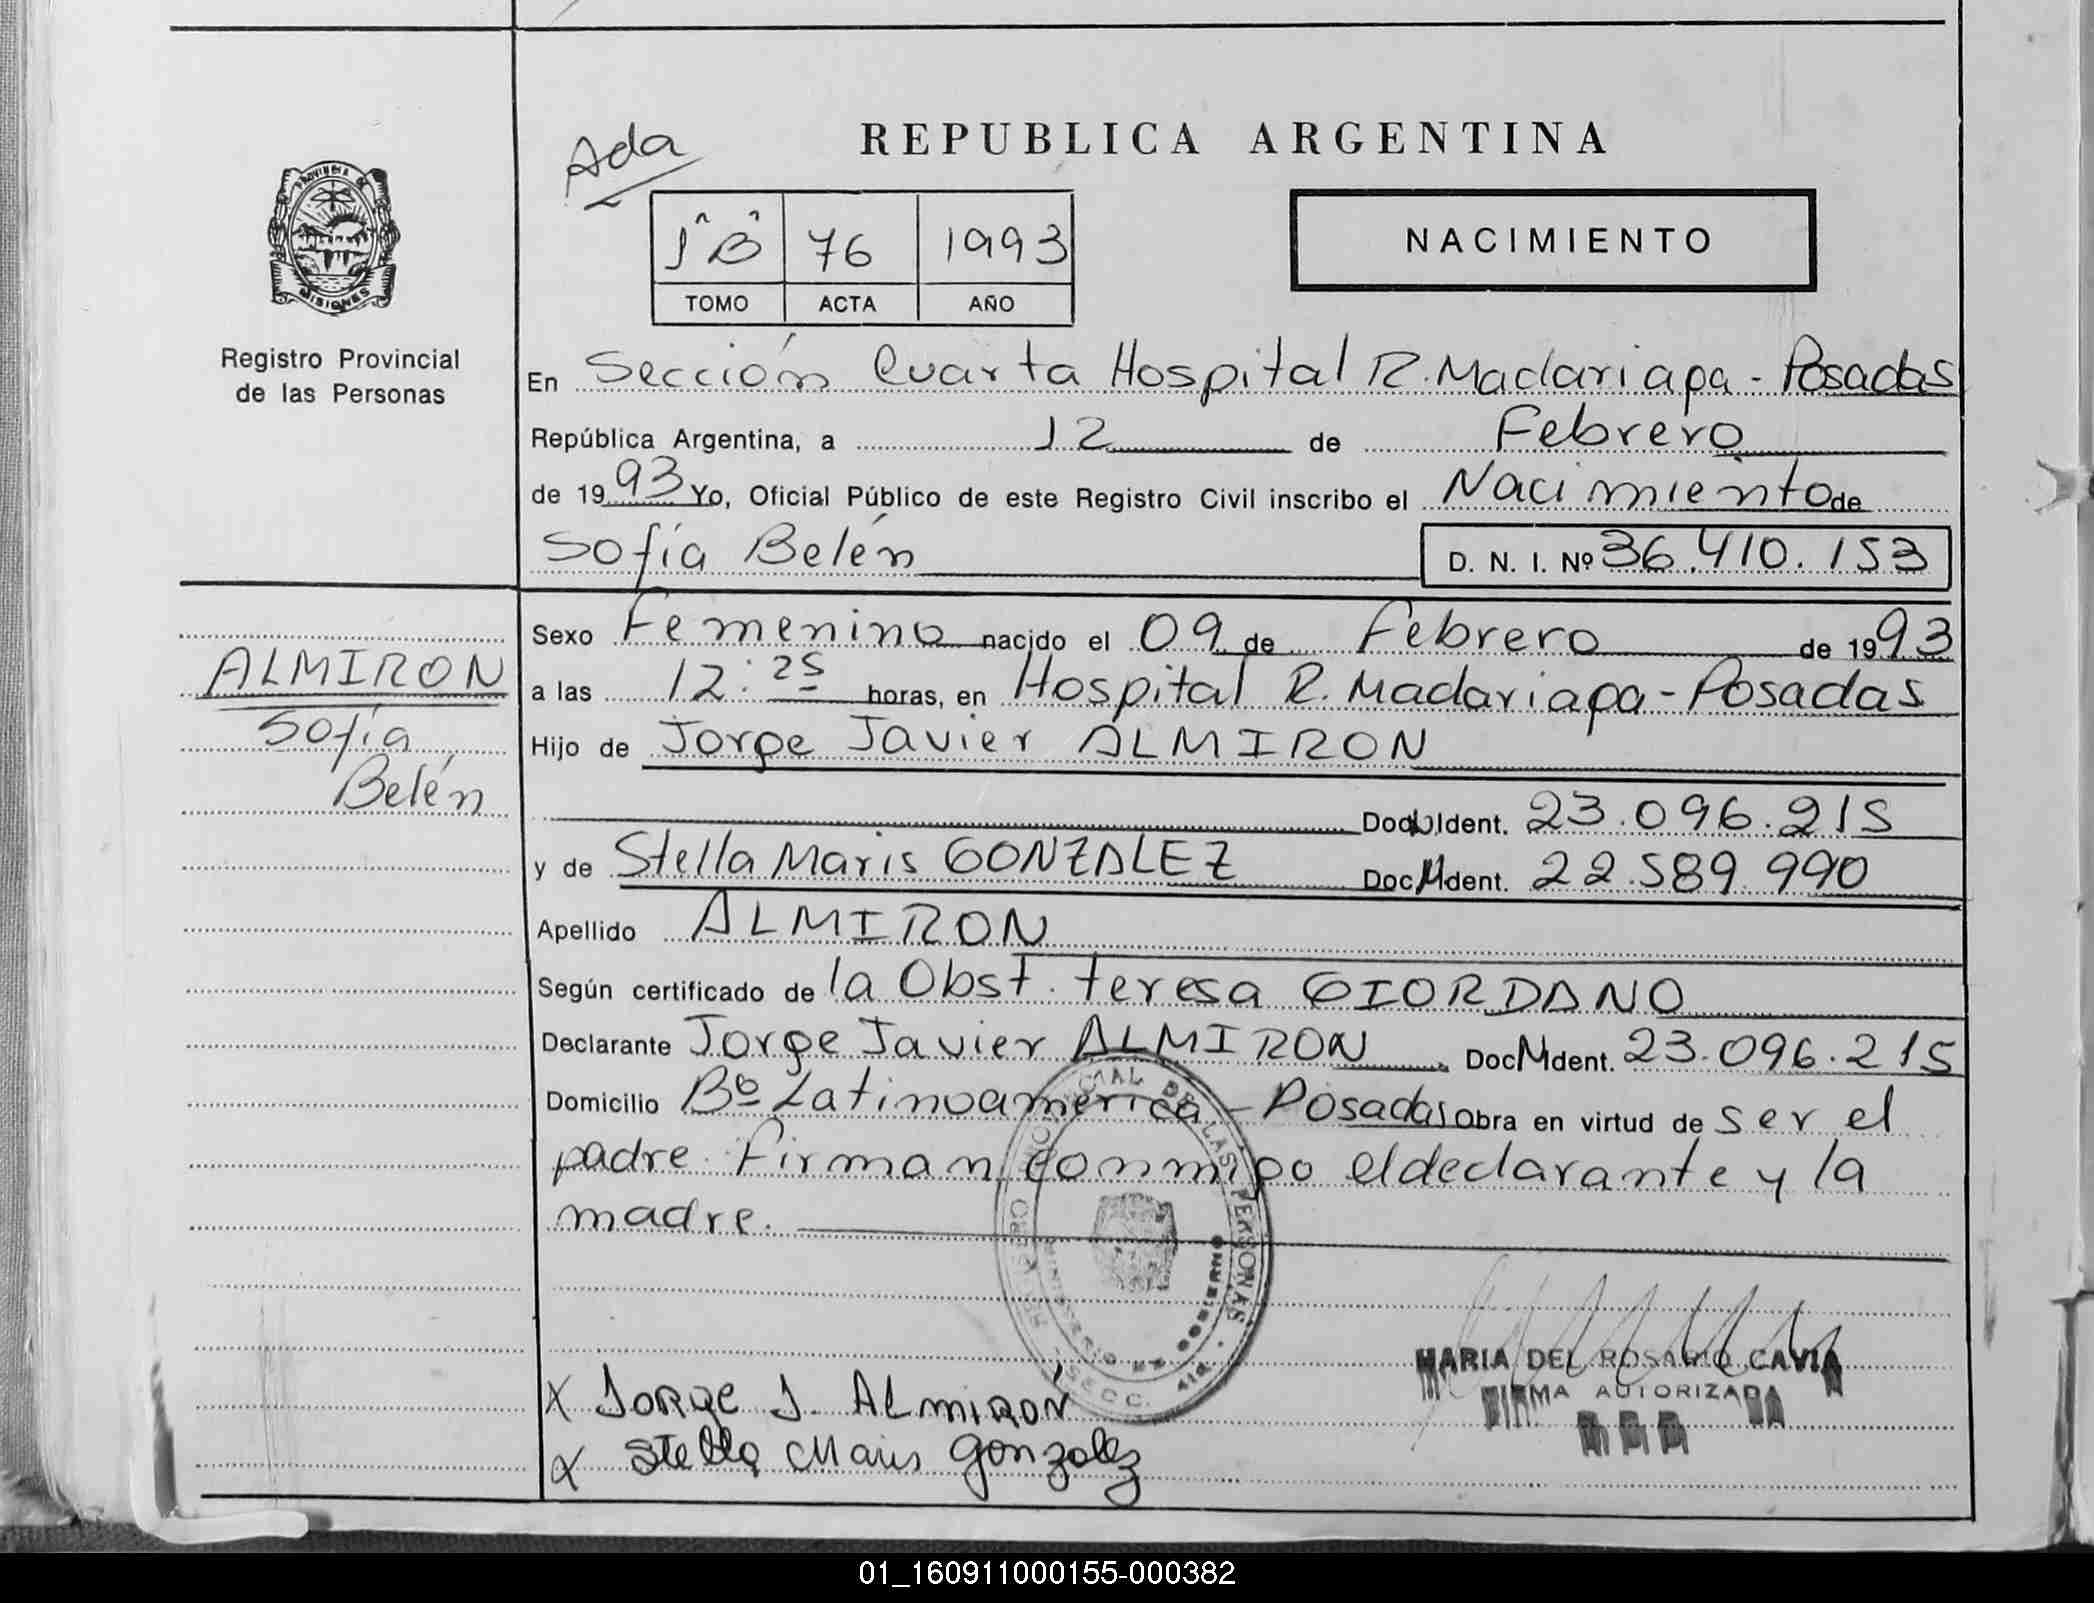 REPUBLICA ARGENTINA
Ada
1ª B 76 1993
TOMO ACTA AÑO
NACIMIENTO
PROVINCIA DE
MISIONES
Registro Provincial
de las Personas
En Sección Cuarta Hospital R. Madariaga - Posadas
República Argentina, a 12 de Febrero
de 1993 Yo, Oficial Público de este Registro Civil inscribo el Nacimiento de
Sofía Belén D. N. I. Nº 36.410.153
Sexo Femenino nacido el 09 de Febrero de 1993
a las 12:25 horas, en Hospital R. Madariaga - Posadas
Hijo de Jorge Javier ALMIRON
Doc. Ident. 23.096.215
y de Stella Maris GONZALEZ Doc. Ident. 22.589.990
Apellido ALMIRON
Según certificado de la Obst. teresa GIORDANO
Declarante Jorge Javier ALMIRON Doc. Ident. 23.096.215
Domicilio Bº Latinoamérica - Posadas Obra en virtud de ser el
padre. Firman conmigo el declarante y la
madre.
ALMIRON
Sofía
Belén
LAS PERSONAS
MINISTERIO DE GOBIERNO
SECC. 4ta
MARIA DEL ROSARIO CAVIA
FIRMA AUTORIZADA
X Jorge J. Almirón
X Stella Maris Gonzalez
01_160911000155-000382